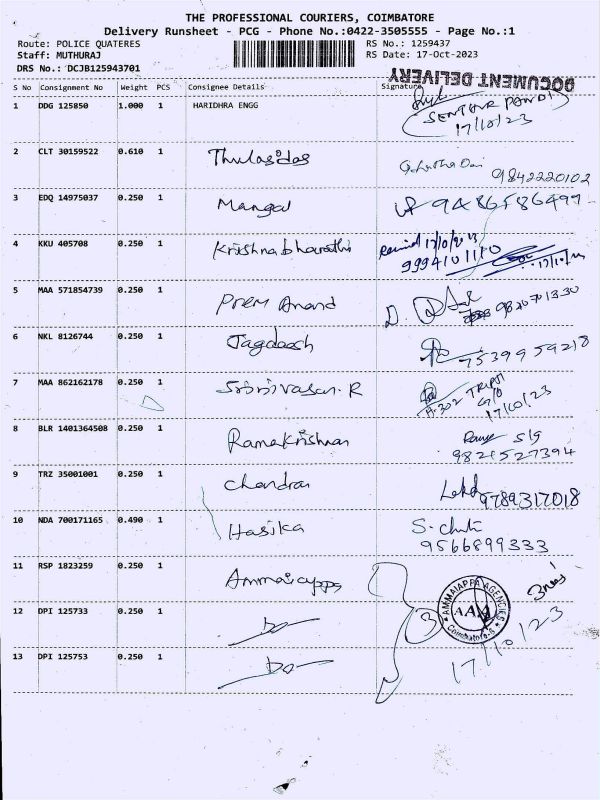 THE PROFESSIONAL COURIERS, COIMBATORE
Delivery Runsheet - PCG - Phone No.:0422-3505555 - Page No.:1
Route: POLICE QUATERES RS No.: 1259437
Staff: MUTHURAJ RS Date: 17-Oct-2023
DRS No.: DCJB125943701
DOCUMENT DELIVERY
S No Consignment No Weight PCS Consignee Details Signature
1 DDG 125850 1.000 1 HARIDHRA ENGG
SENTHUR PANDI
17/10/23
2 CLT 30159522 0.610 1 Thulasidas
9842220102
3 EDQ 14975037 0.250 1 Mangal 9486586499
4 KKU 405708 0.250 1 Krishnabharathi Received 17/10/2023
9994101110
5 MAA 571854739 0.250 1 Prem Anand
6 NKL 8126744 0.250 1 Jagdeesh 7539959218
7 MAA 862162178 0.250 1 Srinivasan.R
A-302
17/10/23
8 BLR 1401364508 0.250 1 Ramakrishnan
9821527394
9 TRZ 35001001 0.250 1 Chandran 9789317018
10 NDA 700171165 0.490 1 Hasika
9566899333
11 RSP 1823259 0.250 1 Ammaiappa
AMMAIAPPA AGENCIES
AAA
Coimbatore-5
12 DPI 125733 0.250 1 Do 3
13 DPI 125753 0.250 1 Do 17/10/23